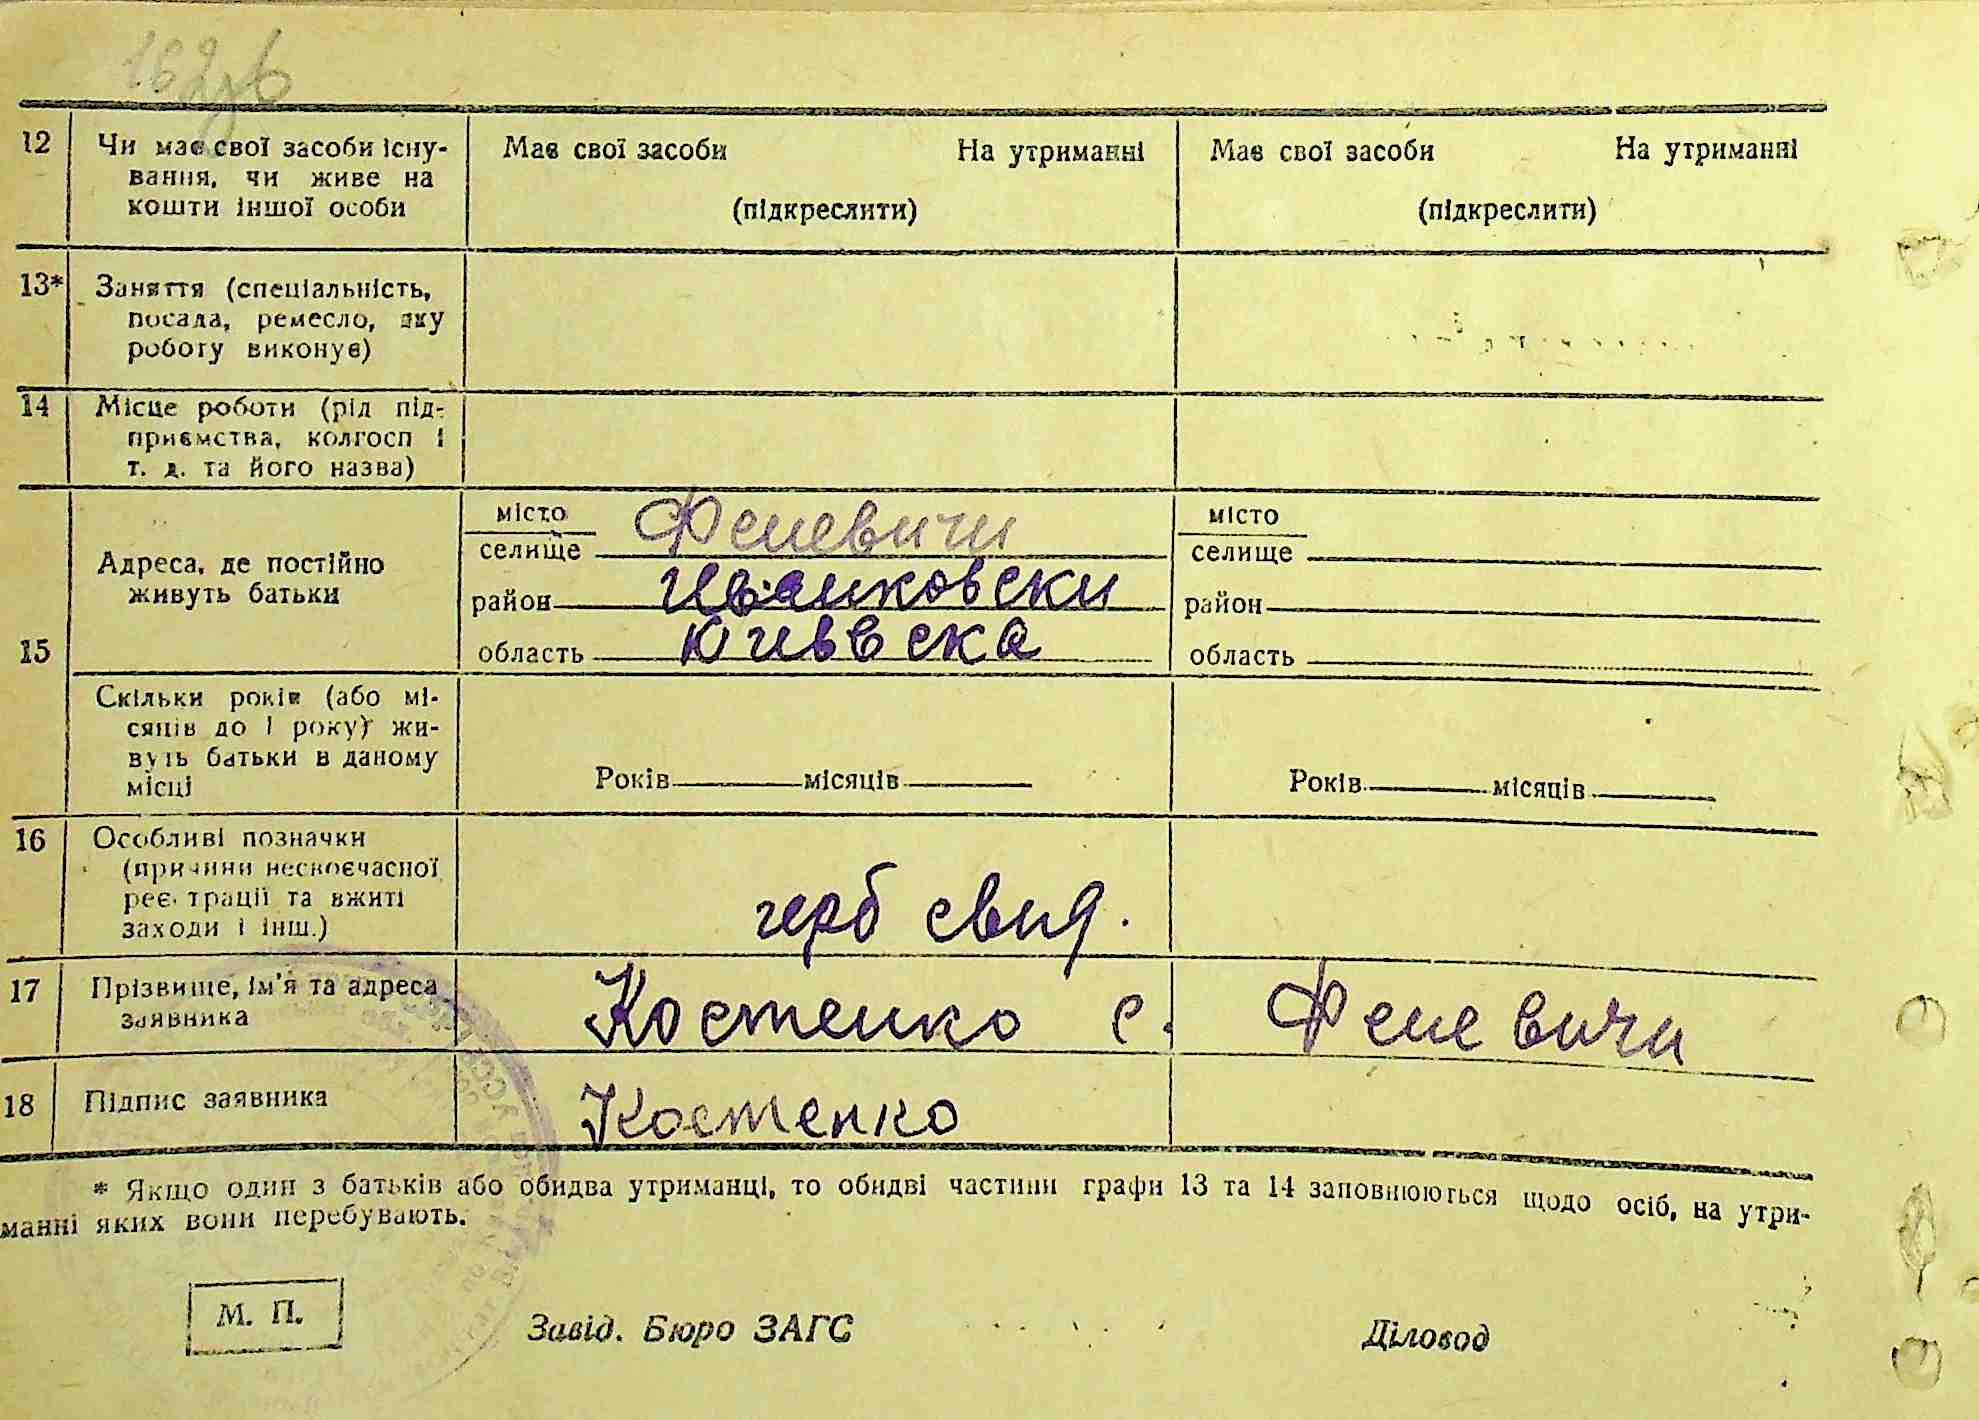 162зв
12 Чи має свої засоби існу-
вання, чи живе на
кошти іншої особи
Має свої засоби На утриманні
(підкреслити)
Має свої засоби На утриманні
(підкреслити)
13* Заняття (спеціальність,
посада, ремесло, яку
роботу виконує)
14 Місце роботи (рід під-
приємства, колгосп і
т. д. та його назва)
15 Адреса, де постійно
живуть батьки
місто
селище Феневичи
район Иванковски
область Київвска
місто
селище
район
область
Скільки років (або мі-
сяців до 1 року) жи-
вуть батьки в даному
місці
Років місяців
Років місяців
16 Особливі позначки
(причини несвоєчасної
реєстрації та вжиті
заходи і інш.)
герб свид.
17 Прізвище, ім'я та адреса
заявника
Костенко с. Феневичи
18 Підпис заявника
Костенко
* Якщо один з батьків або обидва утриманці, то обидві частини графи 13 та 14 заповнюються щодо осіб, на утри-
манні яких вони перебувають.
М. П.
Завід. Бюро ЗАГС Діловод